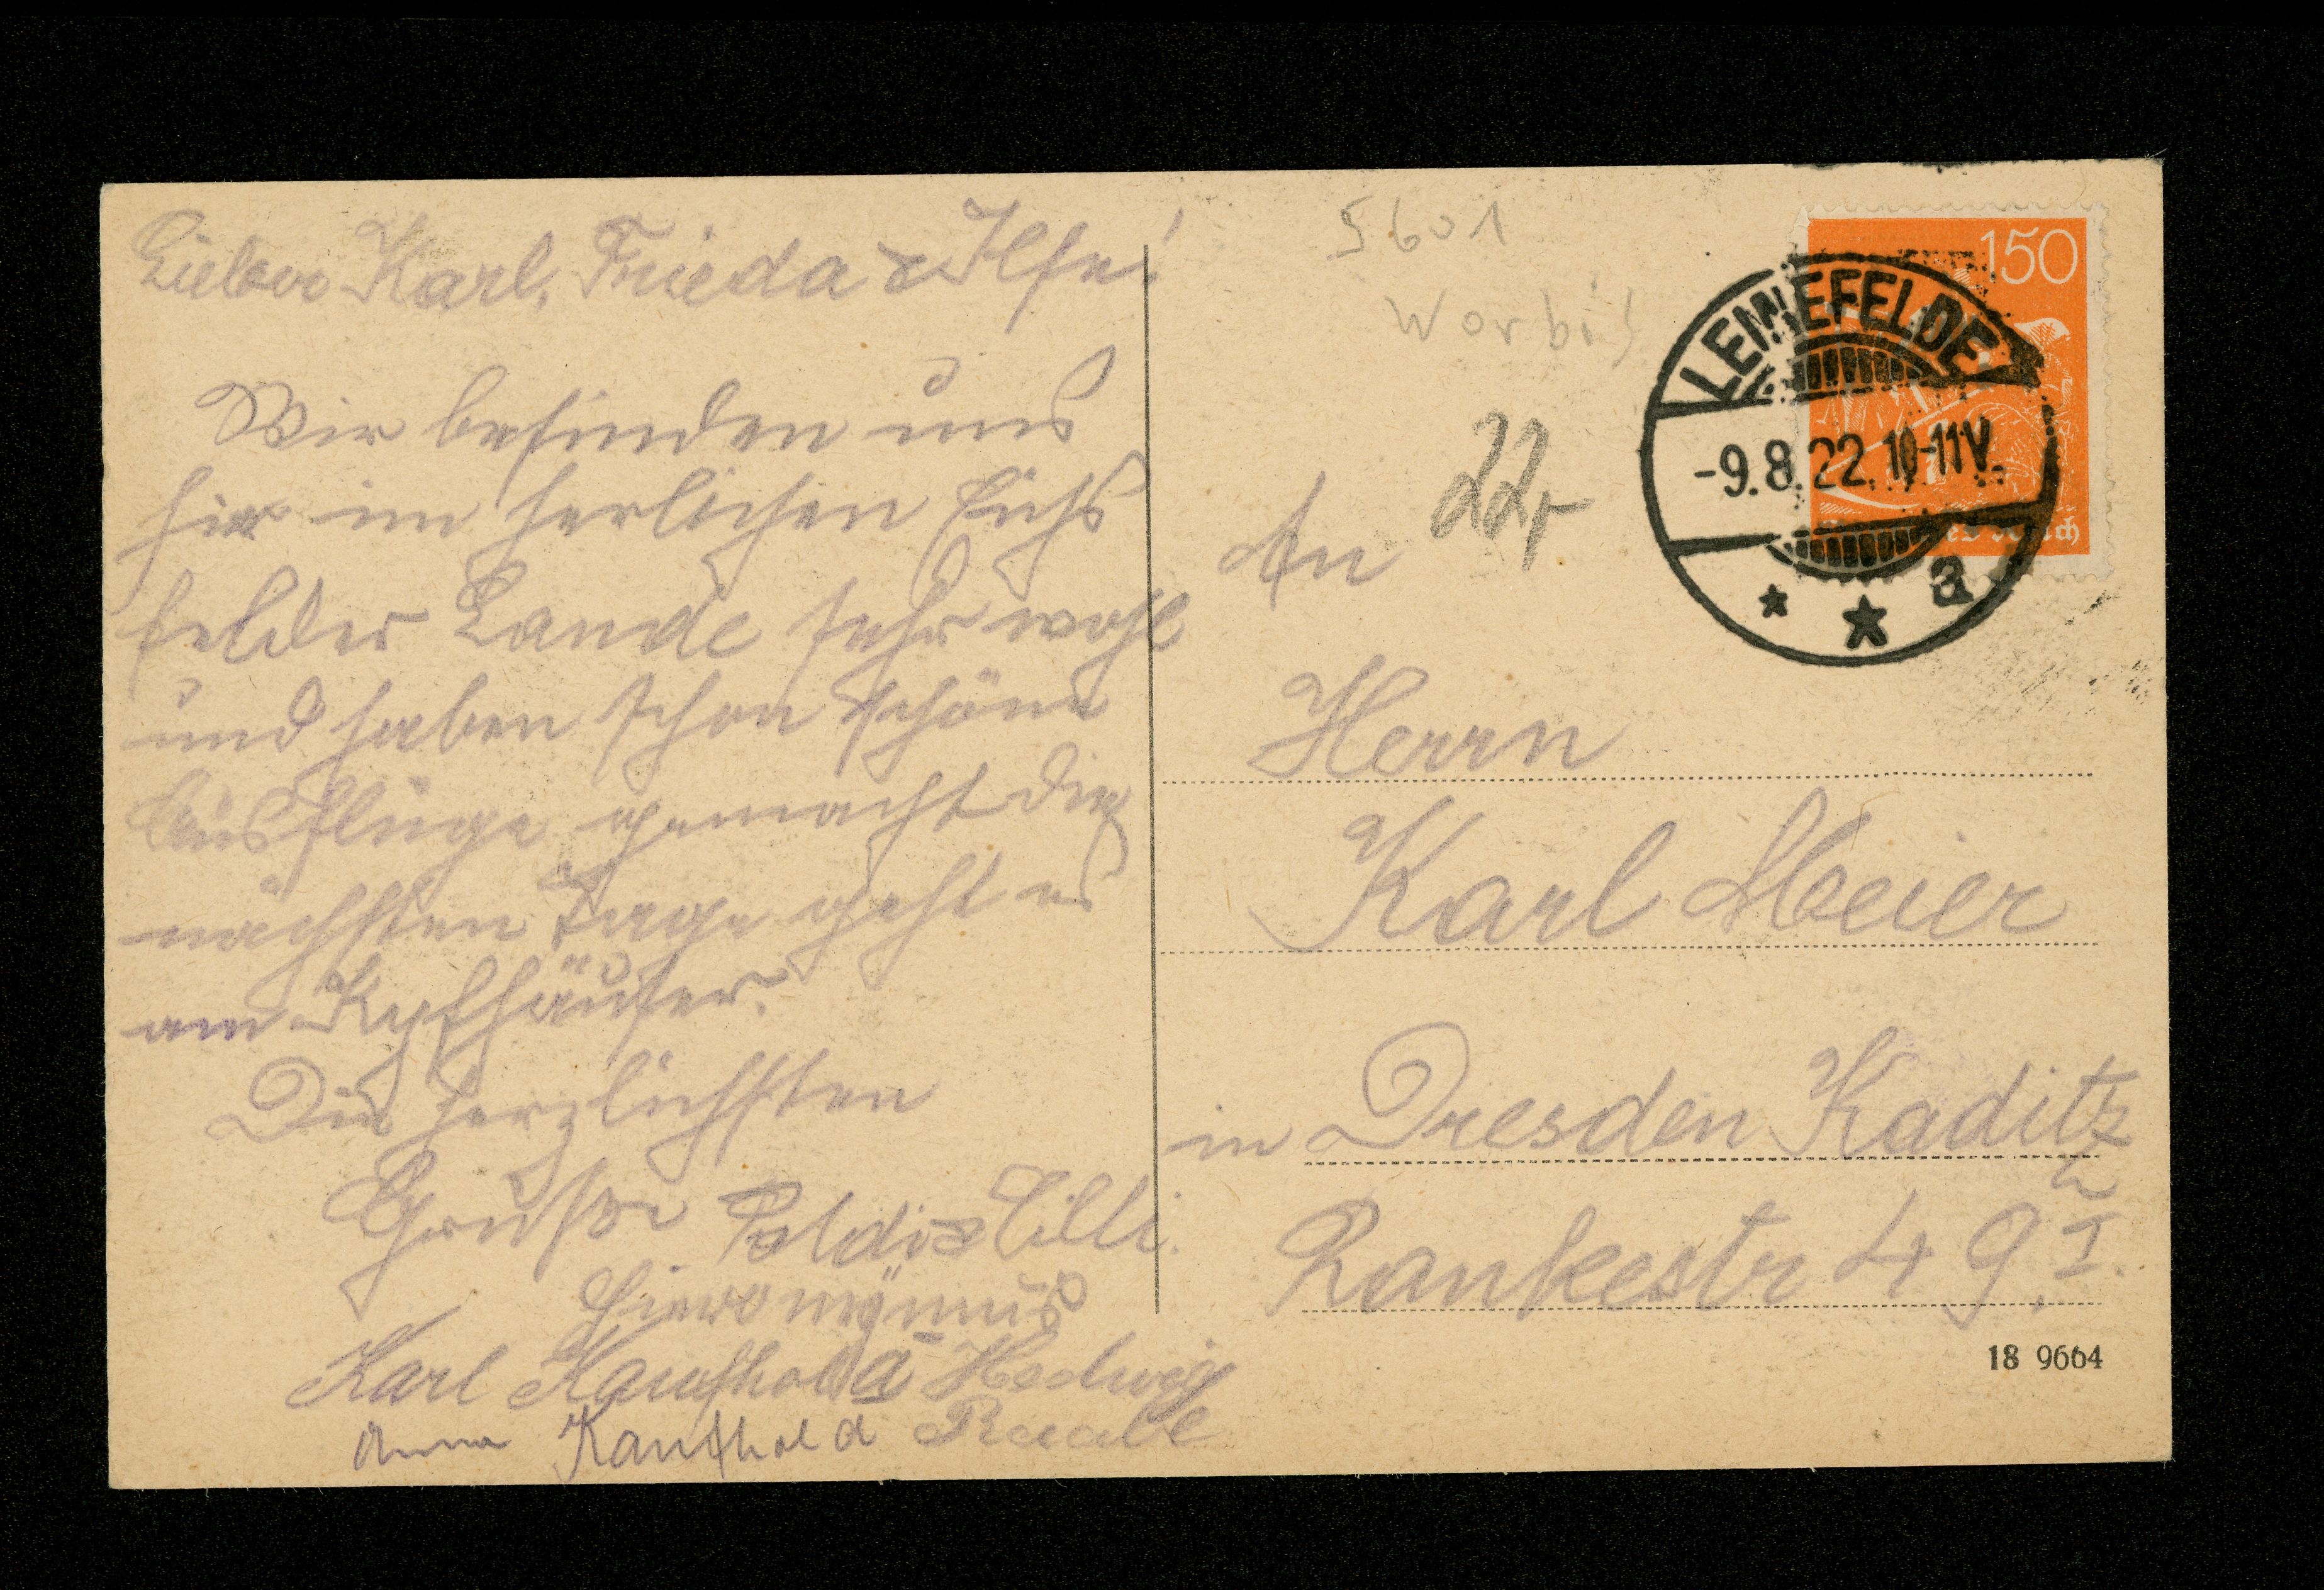 Lieber Karl, Frieda & Ilse!
Wir befinden uns
hir im herlichen Eichs
felder Lande sehr wohl
und haben schon schöne
Ausflüge gemacht die
nächsten Tage geht es
am Kyfhäuser.
Die herzlichsten
Grüße Poldi & Cilli.
Hieronÿmus
Karl Kaufhold Hedwig
Anna Kaufhold Raabe
5601
Worbis
22
150
LEINEFELDE
-9.8.22. 10-11V.
* * a
An
Herrn
Karl Meier
in Dresden Kaditz
Rankestr 49. I.
18 9664